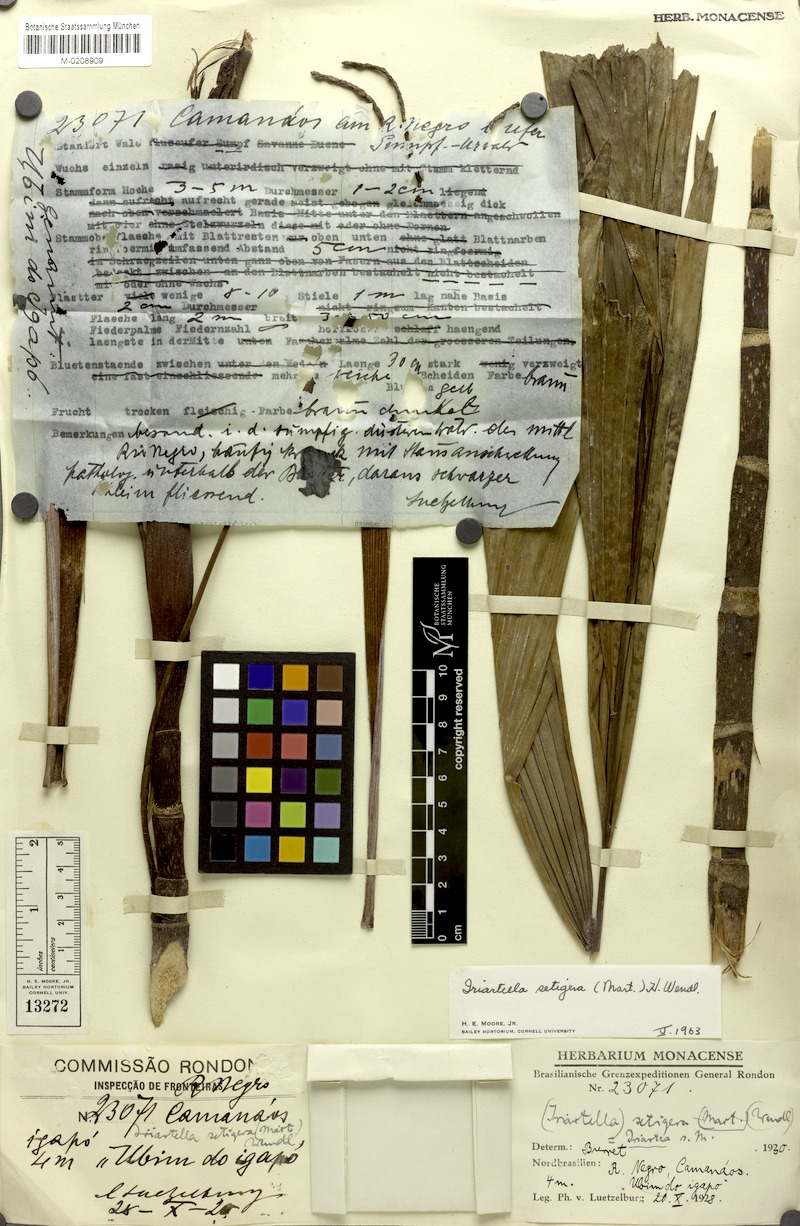 Botanische Staatssammlung München
M-0208909
HERB. MONACENSE
23071 Camanáos am R. Negro
Standort Wald Flussufer Sumpf Savanne Duene Sumpf-Urwald
Wuchs einzeln rasig unterirdisch verzweigt ohne mit Stamm kletternd
Stammform Hoehe 3-5 m Durchmesser 1-2 cm liegend
dann aufrecht aufrecht gerade meist gebogen gleichmaessig dick
nach oben verschmaelert Basis Mitte unter den Blaettern angeschwollen
mit ohne Stelzwurzeln diese mit oder ohne Dornen
Stammoberflaeche mit Blattresten nur oben unten ohne glatt Blattnarben
umfassend Abstand 5 cm nicht ringfoermig
in Schraegzeilen unten ganz oben von Fasern aus den Blattscheiden
bedeckt zwischen an den Blattnarben bestachelt nicht bestachelt
mit oder ohne Wachs
Blaetter viele wenige 8-10 Stiele 1 m lag nahe Basis
2 cm Durchmesser nicht ringsum Kanten bestachelt
Flaeche lang 2 m breit 50 cm
Fiederpalme Fiedernzahl schlaff haengend
laengste in der Mitte unten Faecherpalme Zahl der groesseren Teilungen
Bluetenstaende zwischen unter den Wedeln Laenge 30 cm stark wenig verzweigt
eine fast einschliessende Scheiden Farbe braun
gelb
Frucht trocken fleischig Farbe braun dunkel
Bemerkungen besond. i. d. sumpfig. düsteren Wäld. des mittl
Rio Negro, häufig mit Stammanschwellung
patholog. unterhalb der, daraus schwarzer
Schleim fliessend. Luetzelburg
Ubim do Igapó
Genannt:
BOTANISCHE
STAATSSAMMLUNG
MÜNCHEN
copyright reserved
10
9
8
7
6
5
4
3
2
1
0
cm
2
1
inches
5
4
3
2
1
centimeters
H. E. MOORE, JR.
BAILEY HORTORIUM
CORNELL UNIV.
13272
Iriartella setigera (Mart.) H. Wendl.
H. E. MOORE, JR.
BAILEY HORTORIUM, CORNELL UNIVERSITY V. 1963
COMMISSÃO RONDON
INSPECÇÃO DE FRONTEIRAS
R. Negro
N. 23071 Camanáos,
igapó Iriartella setigera (Mart.) Wendl.
4m "Ubim do igapo
Luetzelburg
28-X-28
HERBARIUM MONACENSE
Brasilianische Grenzexpeditionen General Rondon
Nr. 23071.
(Iriartella) setigera (Mart.) Wendl
= Iriartea s. M.
Determ.: Burret . 1930.
Nordbrasilien: R. Negro, Camanáos.
4m. "Ubim do igapo"
Leg. Ph. v. Luetzelburg 20. X. 1928.